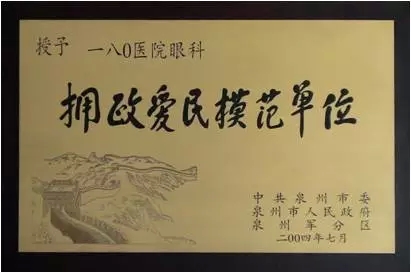 授予 一八0医院眼科
拥政爱民模范单位
中共泉州市委
泉州市人民政府
泉州军分区
二00四年七月